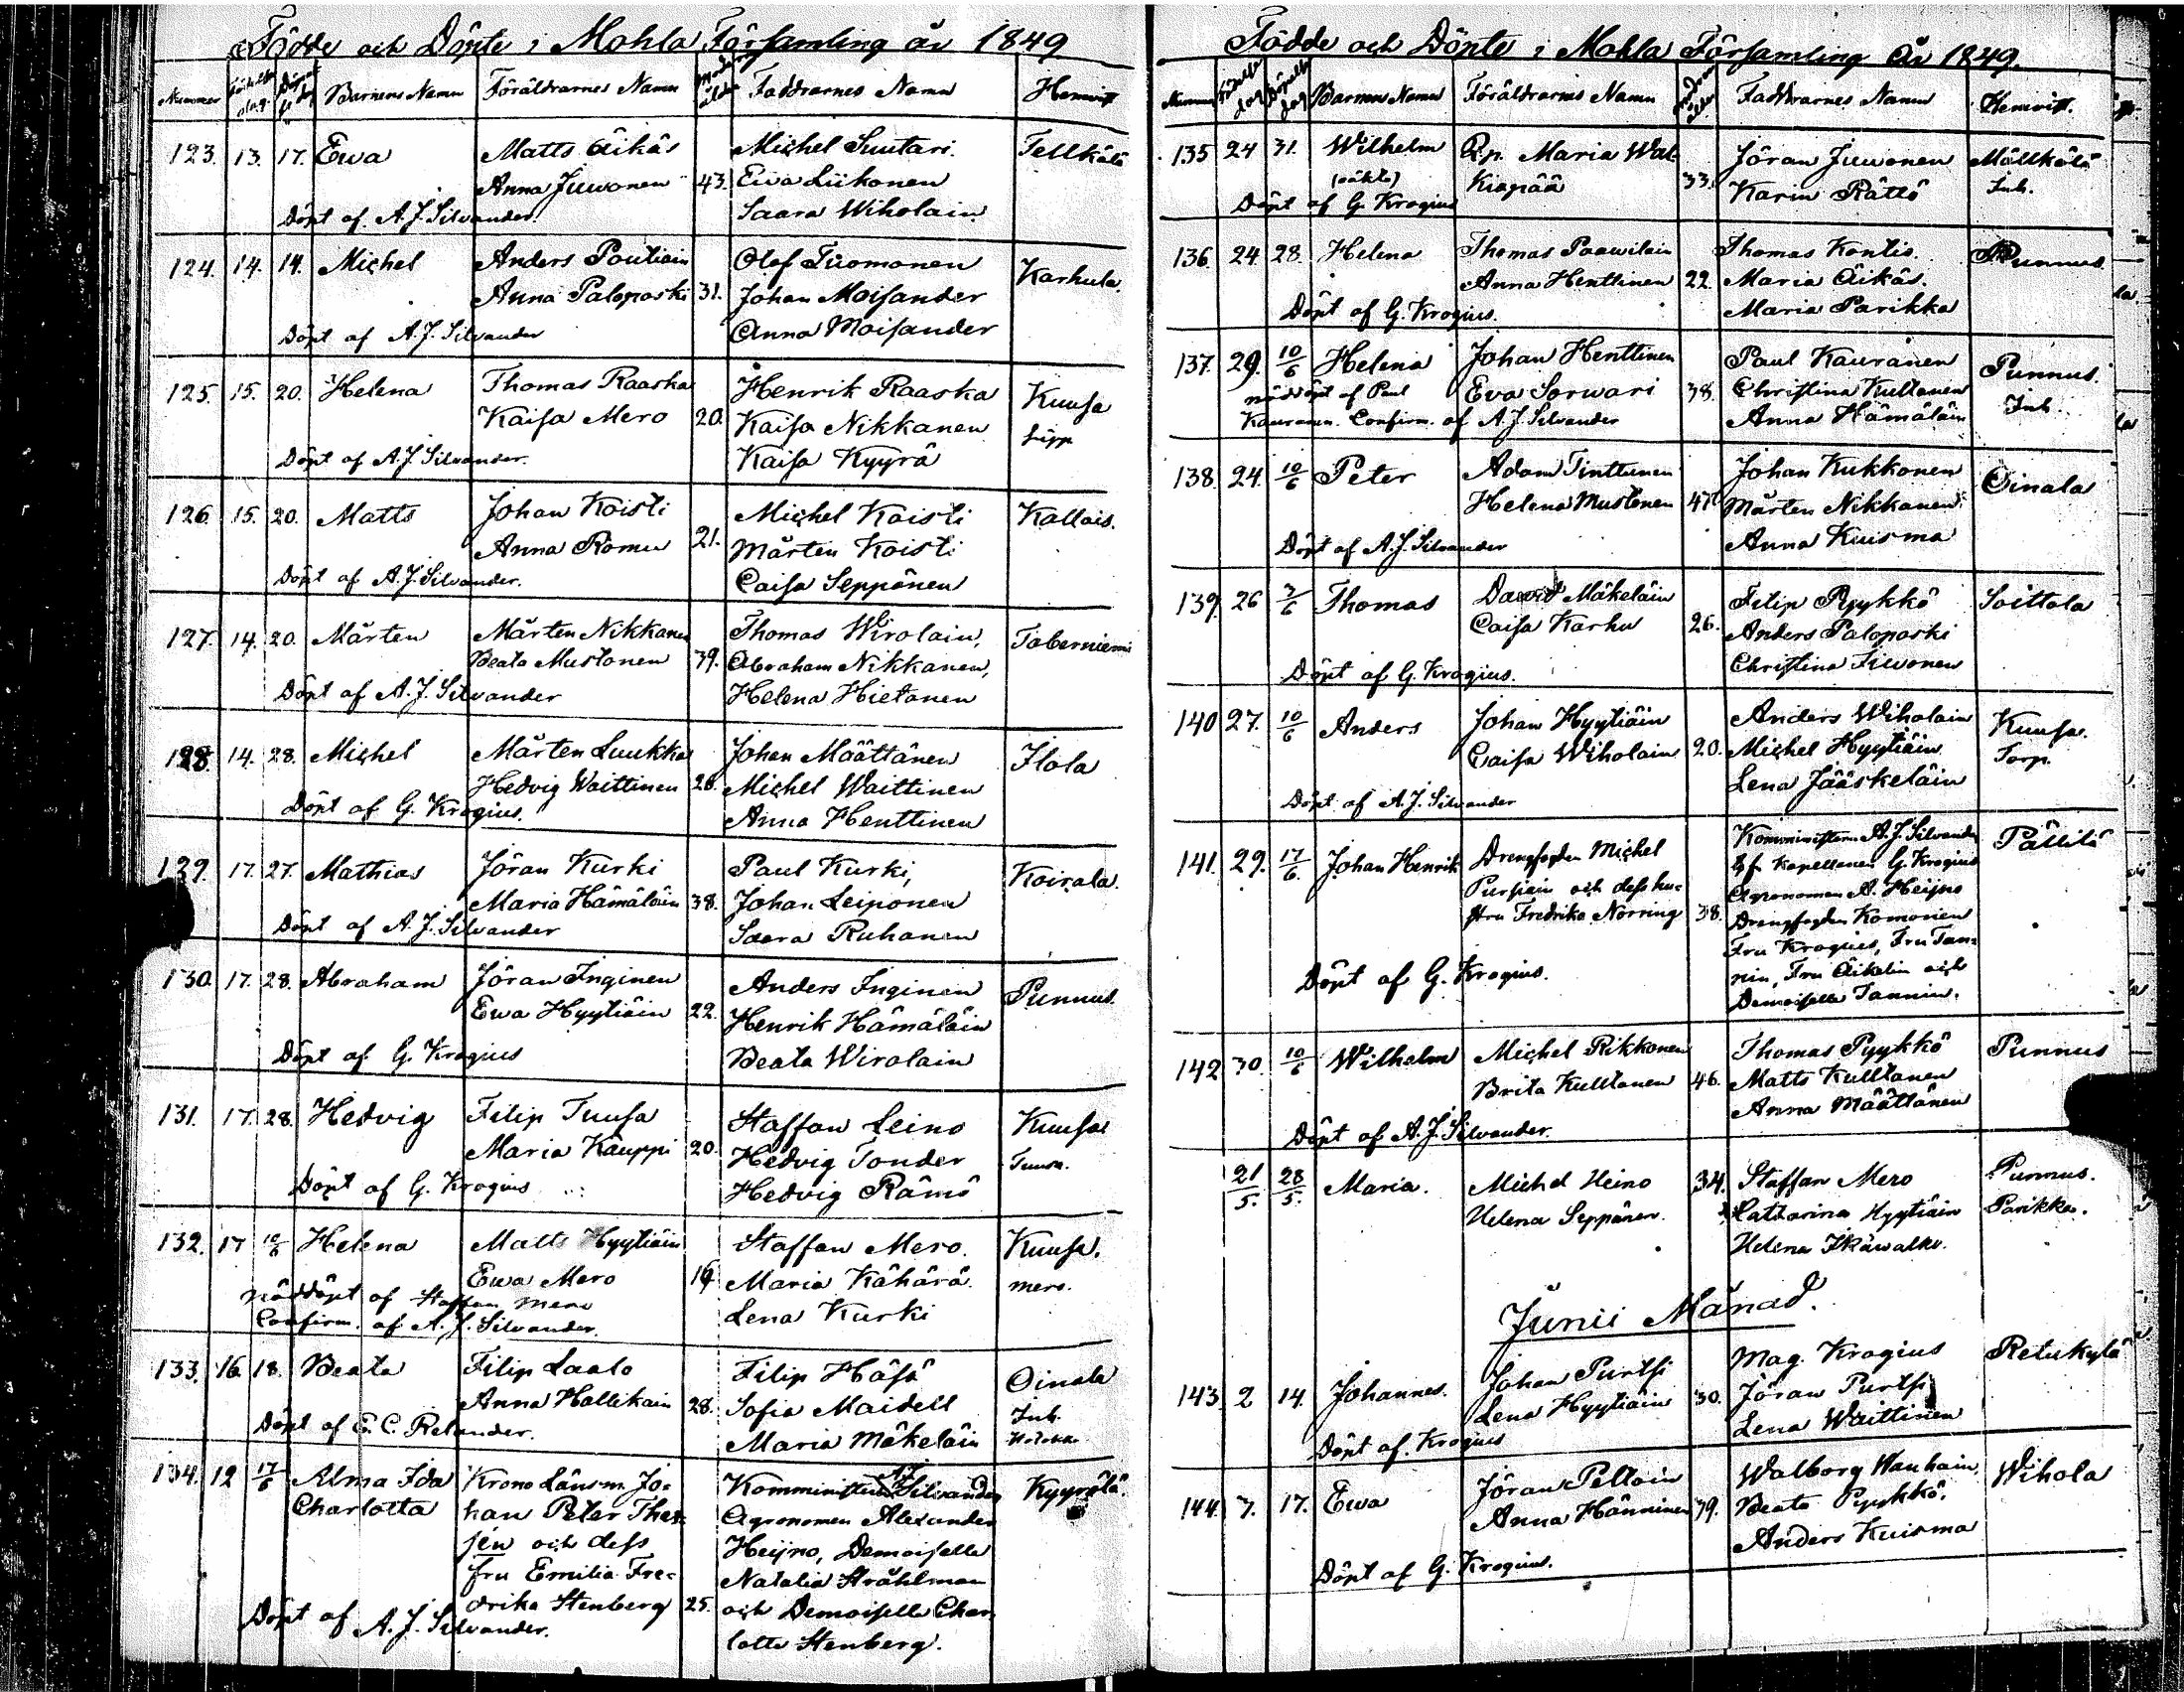 Födde och Döpte i Mohla Församling år 1849
Nummer Födelse dag. Döpelse dag Barnens Namn Föräldrarnes Namn Modrens ålder Faddrarnes Namn Hemvist
123. 13. 17. Ewa Matts Äikäs Michel Suutari. Tellkälä
Anna Juwonen 43. Ewa Liikonen
Döpt af A. J. Silvander. Saara Wiholain
124. 14. 19. Michel Anders Poutiain Olof Tuomonen Karhula.
Anna Paloposki 31. Johan Moisander
Döpt af A. J. Silvander Anna Moisander
125. 15. 20. Helena Thomas Raaska Henrik Raaska Kuusa
Kaisa Mero 20. Kaisa Nikkanen
Döpt af A. J. Silvander. Kaisa Kyyrä
126. 15. 20. Matts Johan Koisti Michel Koisti Kallois.
Anna Romu 21. Mårten Koisti
Döpt af A. J. Silvander. Caisa Seppänen
127. 14. 20. Mårten Mårten Nikkanen Thomas Wirolain, Taberniemi
Beata Mustonen 39. Abraham Nikkanen,
Döpt af A. J. Silvander Helena Hietanen
128. 14. 28. Michel Mårten Luukka Johan Määttänen Ilola
Hedvig Waittinen 26. Michel Waittinen
Döpt af G. Krogius. Anna Henttinen
129. 17. 27. Mathias Jöran Kurki Paul Kurki, Koirala.
Maria Hämäläin 38. Johan Leiponen
Döpt af A. J. Silvander Saara Ruhanen
130. 17. 28. Abraham Jöran Inginen Anders Inginen Punnus.
Ewa Hyytiäin 22. Henrik Hämäläin
Döpt af G. Krogius Beata Wirolain
131. 17. 28. Hedvig Filip Tuusa Staffan Leino Kuusa
Maria Kauppi 20. Hedvig Tonder Tuusa.
Döpt af G. Krogius Hedvig Rämö
132. 17 10/6 Helena Matts Hyytiäin Staffan Mero. Kuusa.
Ewa Mero Maria Kähärä. mero.
nöddöpt af Staffan Mero Lena Kurki
Confirm. af A. J. Silvander.
133. 16. 18. Beata Filip Laalo Filip Häsä Oinala
Anna Hallikain 28. Sofia Maidell Inh.
Döpt af E. C. Relander. Maria Mäkeläin
134. 12 17/6 Alma Ida Krono Länsm. Jo- Komministern A. J. Silvander Kyyrölä.
Charlotta han Peter Thes- Agronomen Alexander
jen och dess Heijno, Demoiselle
fru Emilia Fre- Natalia Stråhlman
drika Stenberg 25. och Demoiselle Char
Döpt af A. J. Silvander. lotte Stenberg.
Födde och Döpte i Mohla Församling År 1849.
Nummer Födelse dag Döpelse dag Barnens Namn Föräldrarnes Namn Modrens ålder Faddrarnes Namn Hemvist.
135 24 31. Wilhelm Q.p. Maria Wal- Jöran Juwonen Mällkälä
(oäkta) kiapää 33. Karin Rättö Inh.
Döpt af G. Krogius
136. 24. 28. Helena Thomas Paawilain Thomas Kontis. Punnus.
Anna Henttinen 22. Maria Äikäs.
Döpt af G. Krogius. Maria Parikka
137. 29. 10/6 Helena Johan Henttinen Paul Kauranen Punnus.
nöddöpt af Paul Eva Sorwari 38. Christina Kultanen Inh.
Kauranen. Confirm. af A. J. Silvander Anna Hämäläin
138. 24. 10/6 Peter Adam Tinttunen Johan Kukkonen Oinala
Helena Mustonen 47. Mårten Nikkanen.
Döpt af A. J. Silvander Anna Kuisma
139. 26 3/6 Thomas David Mäkeläin Filip Pyykkö Soittola
Caisa Karhu 26. Anders Paloposki
Döpt af G. Krogius. Christina Juvonen
140 27. 10/6 Anders Johan Hyytiäin Anders Wiholain Kuusa.
Caisa Wiholain 20. Michel Hyytiäin Torp.
Döpt af A. J. Silvander Lena Jääskeläin
141. 29. 17/6 Johan Henrik Drengfogden Michel Komministern A. J. Silvander Pällilä
Pursiain och dess hu- Kapellanen G. Krogius
stru Fredrika Norring 38. Agronomen A. Heijno
Drengfogden Komonen
Fru Krogius, Fru Tan-
Döpt af G. Krogius. nin, Fru Äikelin och
Demoiselle Tannin.
142 30. 10/6 Wilhelm Michel Rikkonen Thomas Pyykkö Punnus
Brita Kulltanen 46. Matts Kulltanen
Döpt af A. J. Silvander. Anna Määttänen
21/5. 28/5. Maria. Michel Heino 34. Staffan Mero Punnus.
Helena Seppänen. Catharina Hyytiäin Parikka.
Helena Ikäwalko.
Junii Månad.
143. 2 14. Johannes. Johan Purtsi Mag. Krogius Retukylä
Lena Hyytiäin 30. Jöran Purtsi
Döpt af. Krogius Lena Waittinen
144. 7. 17. Ewa Jöran Peltain Walborg Wanhain Wihola
Anna Hänninen 39. Beata Pyykkö.
Döpt af G. Krogius. Anders Kuisma